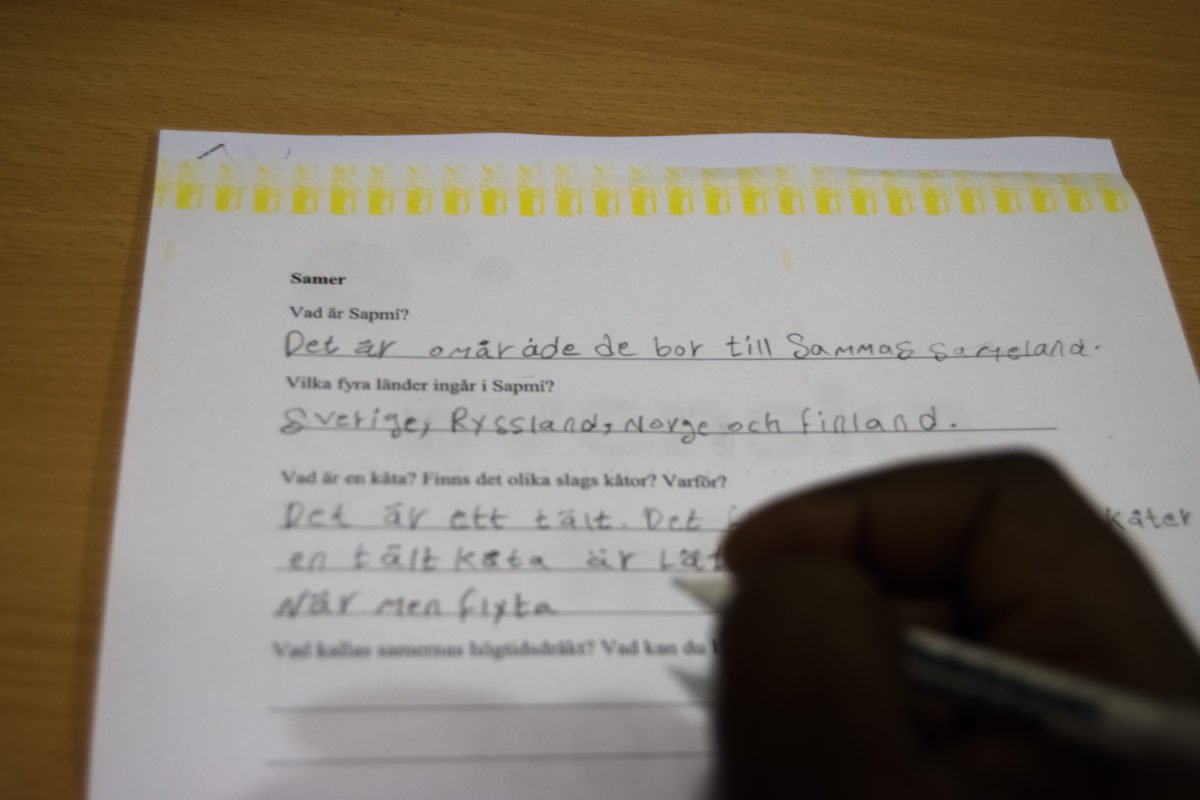 Samer
Vad är Sapmí?
Det är området de bor till Sammas sameland.
Vilka fyra länder ingår i Sapmí?
Sverige, Ryssland, Norge och finland.
Vad är en kåta? Finns det olika slags kåtor? Varför?
Det är ett tält. Det kåter
en tält kata är
När men flyta
Vad kallas samernas högtidsdräkt? Vad kan du